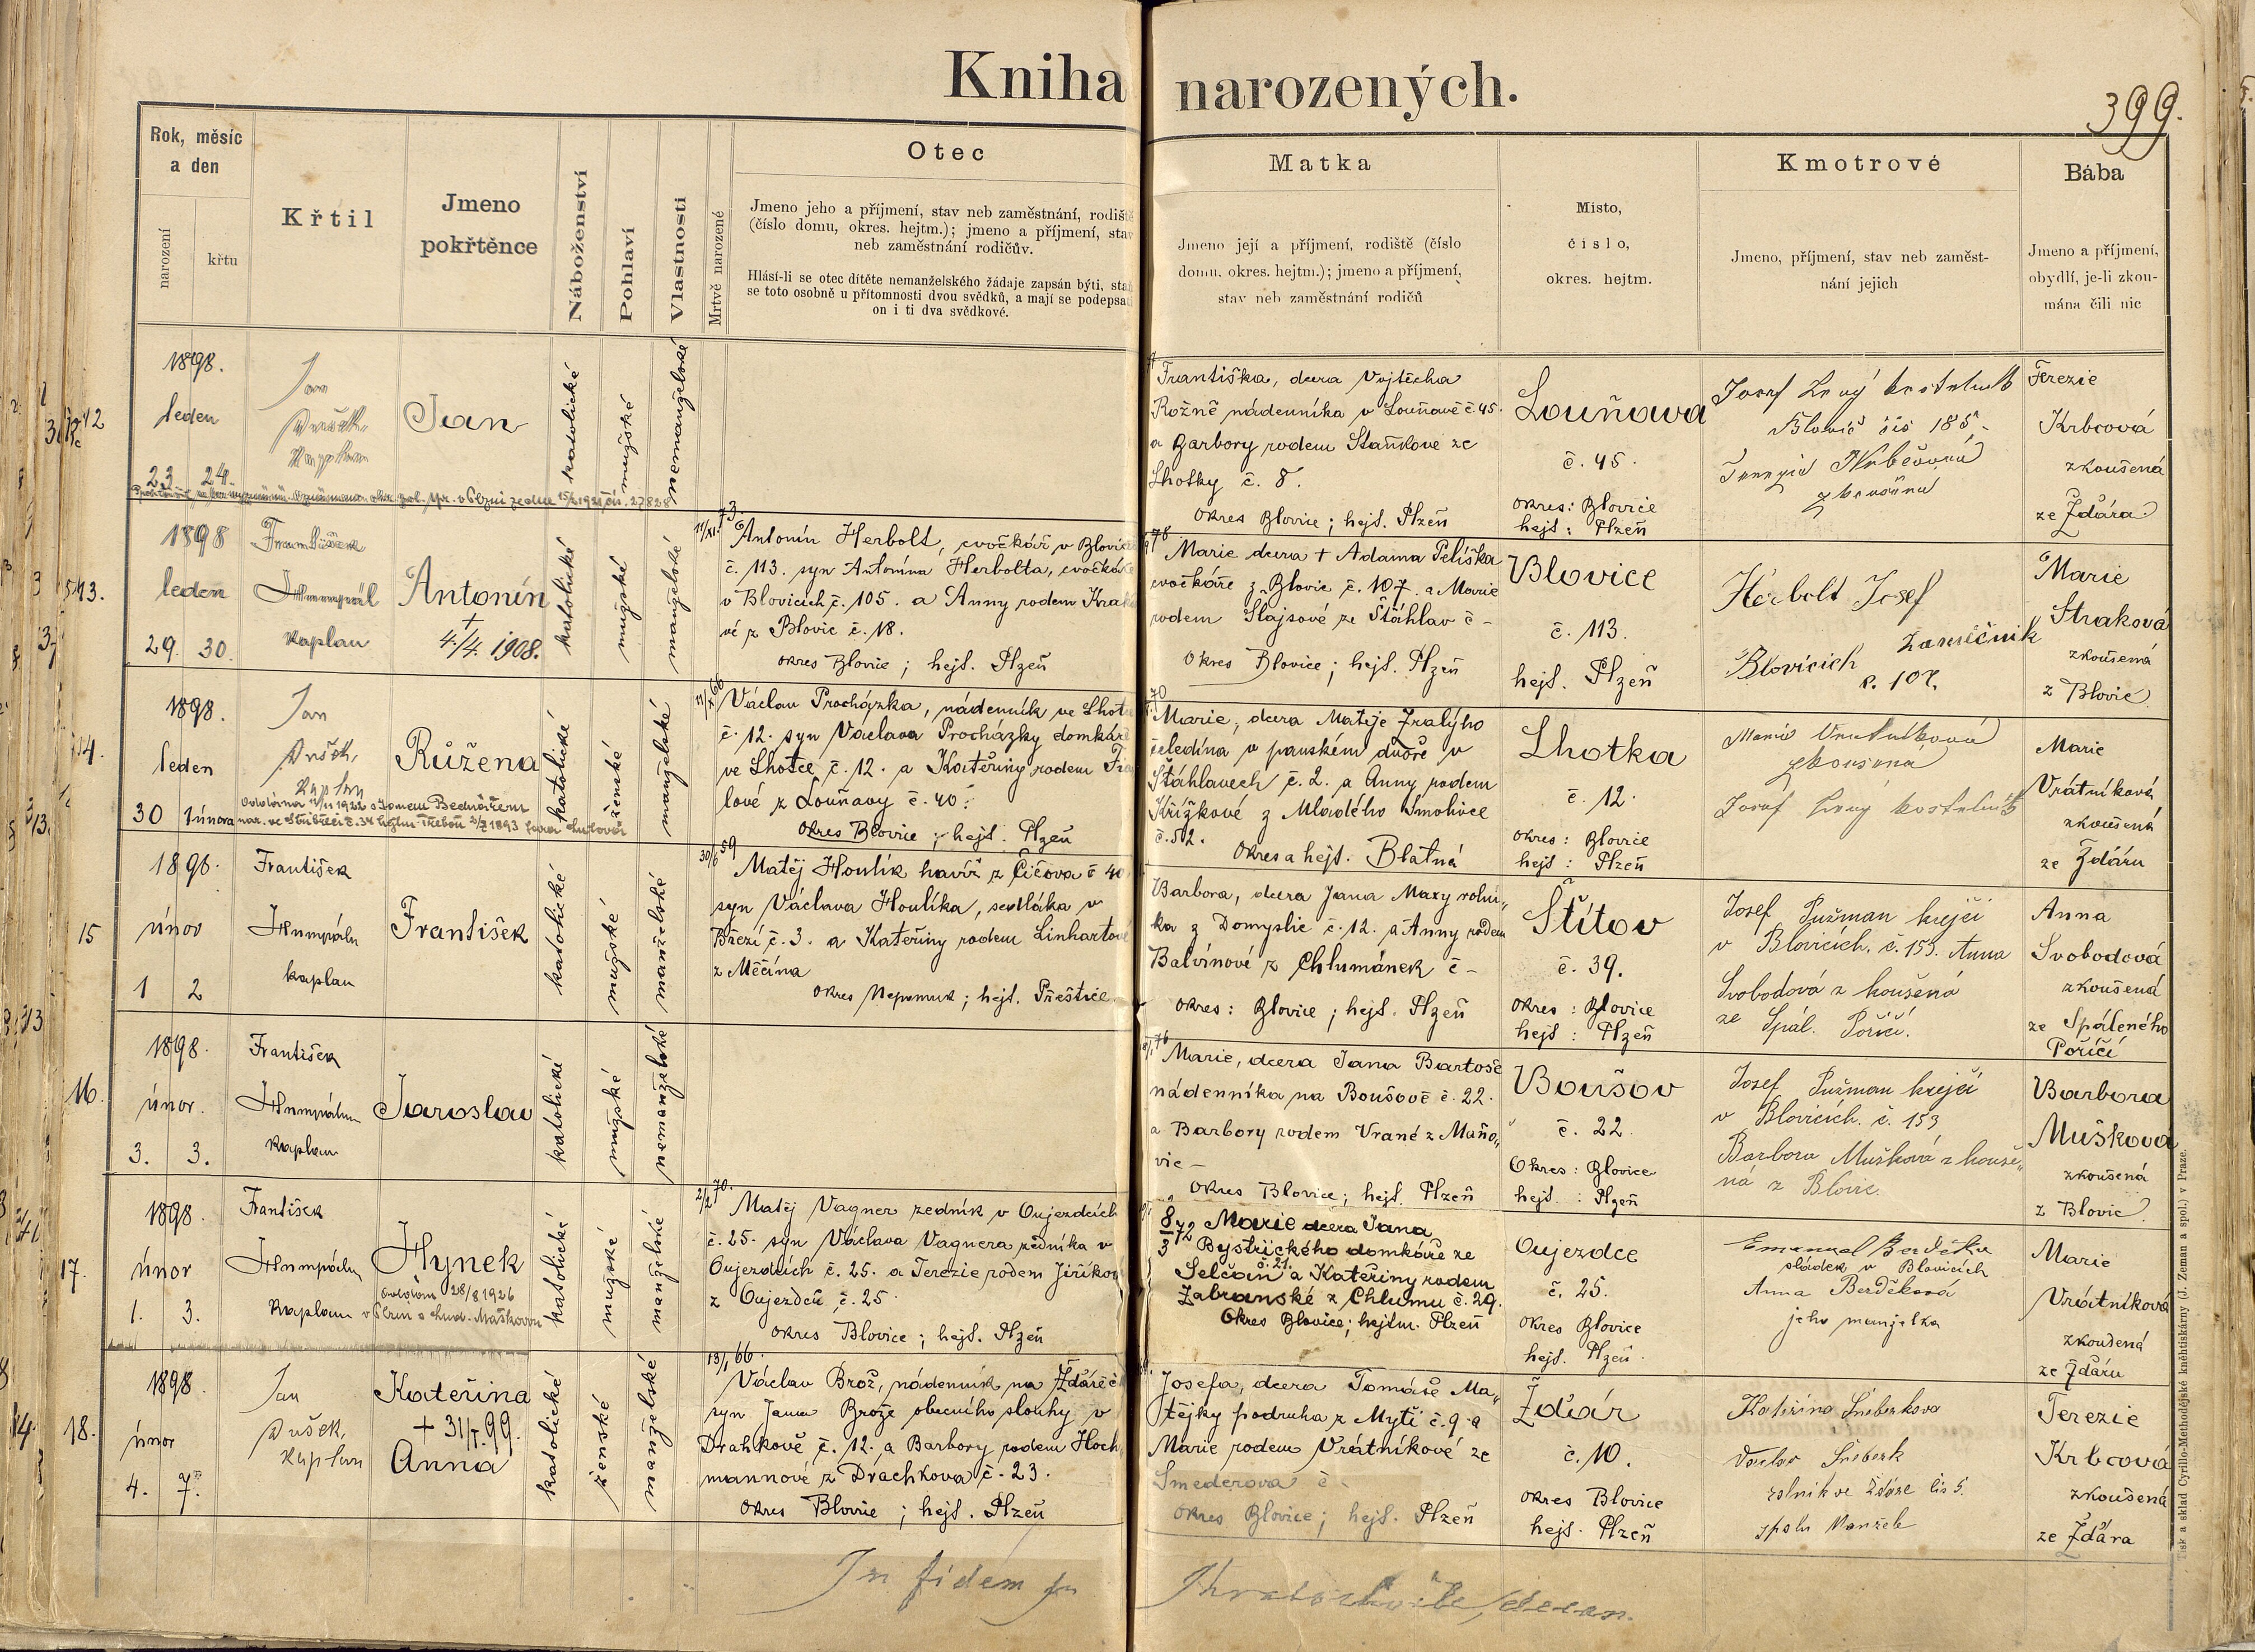 Kniha narozených.
399.
Rok, měsíc
a den
narození
křtu
Křtil
Jmeno
pokřtěnce
Náboženství
Pohlaví
Vlastnosti
Mrtvě narozené
Otec
Jmeno jeho a příjmení, stav neb zaměstnání, rodiště
(číslo domu, okres. hejtm.); jmeno a příjmení, stav
neb zaměstnání rodičův.
Hlásí-li se otec dítěte nemanželského žádaje zapsán býti, staň
se toto osobně u přítomnosti dvou svědků, a mají se podepsati
on i ti dva svědkové.
Matka
Jmeno její a příjmení, rodiště (číslo
domu, okres. hejtm.); jmeno a příjmení,
stav neb zaměstnání rodičů
Místo,
číslo,
okres. hejtm.
Kmotrové
Jmeno, příjmení, stav neb zaměst-
nání jejich
Bába
Jmeno a příjmení,
obydlí, je-li zkou-
mána čili nic
12
1898.
leden
23 24.
Jan
Dušek
Kaplan
Jan
katolické
mužské
nemanželské
Františka, dcera Vojtěcha
Rožně nádenníka v Louňavě č. 45.
a Barbory rodem Staňkové ze
Lhotky č. 8.
Okres Blovice; hejt. Plzeň
Louňova
č. 45.
Okres: Blovice
hejt: Plzeň
Josef
Terezie
Krbcová
zkoušená
ze Žďára
13.
1898
leden
29. 30.
František
kaplan
Antonín
+
4./4. 1908.
katolické
mužské
manželské
11/XI. 73.
Antonín Herbolt, cvočkář v Blovicích
č. 113. syn Antonína Herbolta, cvočkáře
v Blovicích č. 105. a Anny rodem
vé z Blovic č. 18.
okres Blovice; hejt. Plzeň
78
Marie dcera + Adama Pelíška
cvočkáře z Blovic č. 107. a Marie
rodem Šlajsové ze Štáhlav č –
Okres Blovice; hejt. Plzeň
Blovice
č. 113.
hejt. Plzeň
Herbolt Josef
Zámečník
Blovicích č. 107.
Marie
Straková
zkoušená
z Blovic
14.
1898.
leden
30 1 února
Jan
Dušek,
Kaplan
Růžena
katolické
ženské
manželské
66
Václav Procházka, nádenník ve Lhotce
č. 12. syn Václava Procházky domkáře
ve Lhotce č. 12. a Kateřiny rodem
lové z Louňavy č. 40.
Okres Blovice; hejt. Plzeň
70
Marie, dcera Matěje Zralýho
čeledína v panském dvoře v
Štáhlavech č. 2. a Anny rodem
Křížkové z Mladého Smolivce
č. 52. Okres a hejt. Blatná
Lhotka
č. 12.
Okres: Blovice
hejt: Plzeň
Marie Vrátníková
zkoušená
Josef
Marie
Vrátníková
zkoušená
ze Žďáru
15
1898.
únor
1 2
František
kaplan
František
katolické
mužské
manželské
30/6 59
Matěj Houlík havíř z Čičova č 40
syn Václava Houlíka, sedláka v
Březí č. 3. a Kateřiny rodem Linhartové
z Měčína
okres Nepomuk; hejt. Přeštice
Barbora, dcera Jana Maxy rolní„
ka z Domyslic č. 12. a Anny rodem
Balvínové z Chlumánek č –
okres: Blovice; hejt. Plzeň
Štítov
č. 39.
Okres: Blovice
hejt: Plzeň
Josef Pužman krejčí
v Blovicích. č. 153. Anna
Svobodová zkoušená
ze Spál. Poříčí.
Anna
Svobodová
zkoušená
ze Spáleného
Poříčí
16.
1898.
únor.
3. 3.
František
Kaplan
Jaroslav
katolické
mužské
nemanželské
76
Marie, dcera Jana Bartoše
nádenníka na Boušově č. 22.
a Barbory rodem Vrané z Maňo„
vic –
okres Blovice; hejt. Plzeň
Boušov
č. 22.
Okres: Blovice
hejt.: Plzeň
Josef Pužman krejčí
v Blovicích. č. 153
Barbora Mušková zkouše„
ná z Blovic.
Barbora
Mušková
zkoušená
z Blovic
17.
1898.
únor
1. 3.
František
Kaplan
Hynek
28/8 1926
katolické
mužské
manželské
2/2 70.
Matěj Vagner zedník v Oujezdcích
č. 25. syn Václava Vagnera zedníka v
Oujezdcích č. 25. a Terezie rodem Jiříkové
z Oujezdců č. 25.
okres Blovice; hejt. Plzeň
8/3 72 Marie dcera Jana
Bystřického domkáře ze
Selčan č. 21. a Kateřiny rodem
Zabranské z Chlumu č. 29.
Okres Blovice; hejtm. Plzeň
Oujezdce
č. 25.
Okres Blovice
hejt. Plzeň
sládek v Blovicích
Anna
jeho manželka
Marie
Vrátníková
zkoušená
ze Žďáru
18.
1898.
únor
4. 7.
Jan
Dušek,
Kaplan
Kateřina
+ 31/I. 99.
Anna
katolické
ženské
manželské
13/1 66.
Václav Brož, nádenník na Žďáře č
syn Jana Brože obecního slouhy v
Drahkově č. 12. a Barbory rodem Hoch
mannové z Dráchkova č. 23.
Okres Blovice; hejt. Plzeň
Josefa, dcera Tomáše Ma„
tějky podruha z Mýtí č. 9. a
Marie rodem Vrátníkové ze
Smederova č –
Okres Blovice; hejt. Plzeň
Žďár
č. 10.
okres Blovice
hejt. Plzeň
Kateřina
Václav
rolník ve Žďáře čís 5.
Terezie
Krbcová
zkoušená
ze Žďára
In fidem
Tisk a sklad Cyrillo-Methodějské knihtiskárny (J. Zeman a spol.) v Praze.